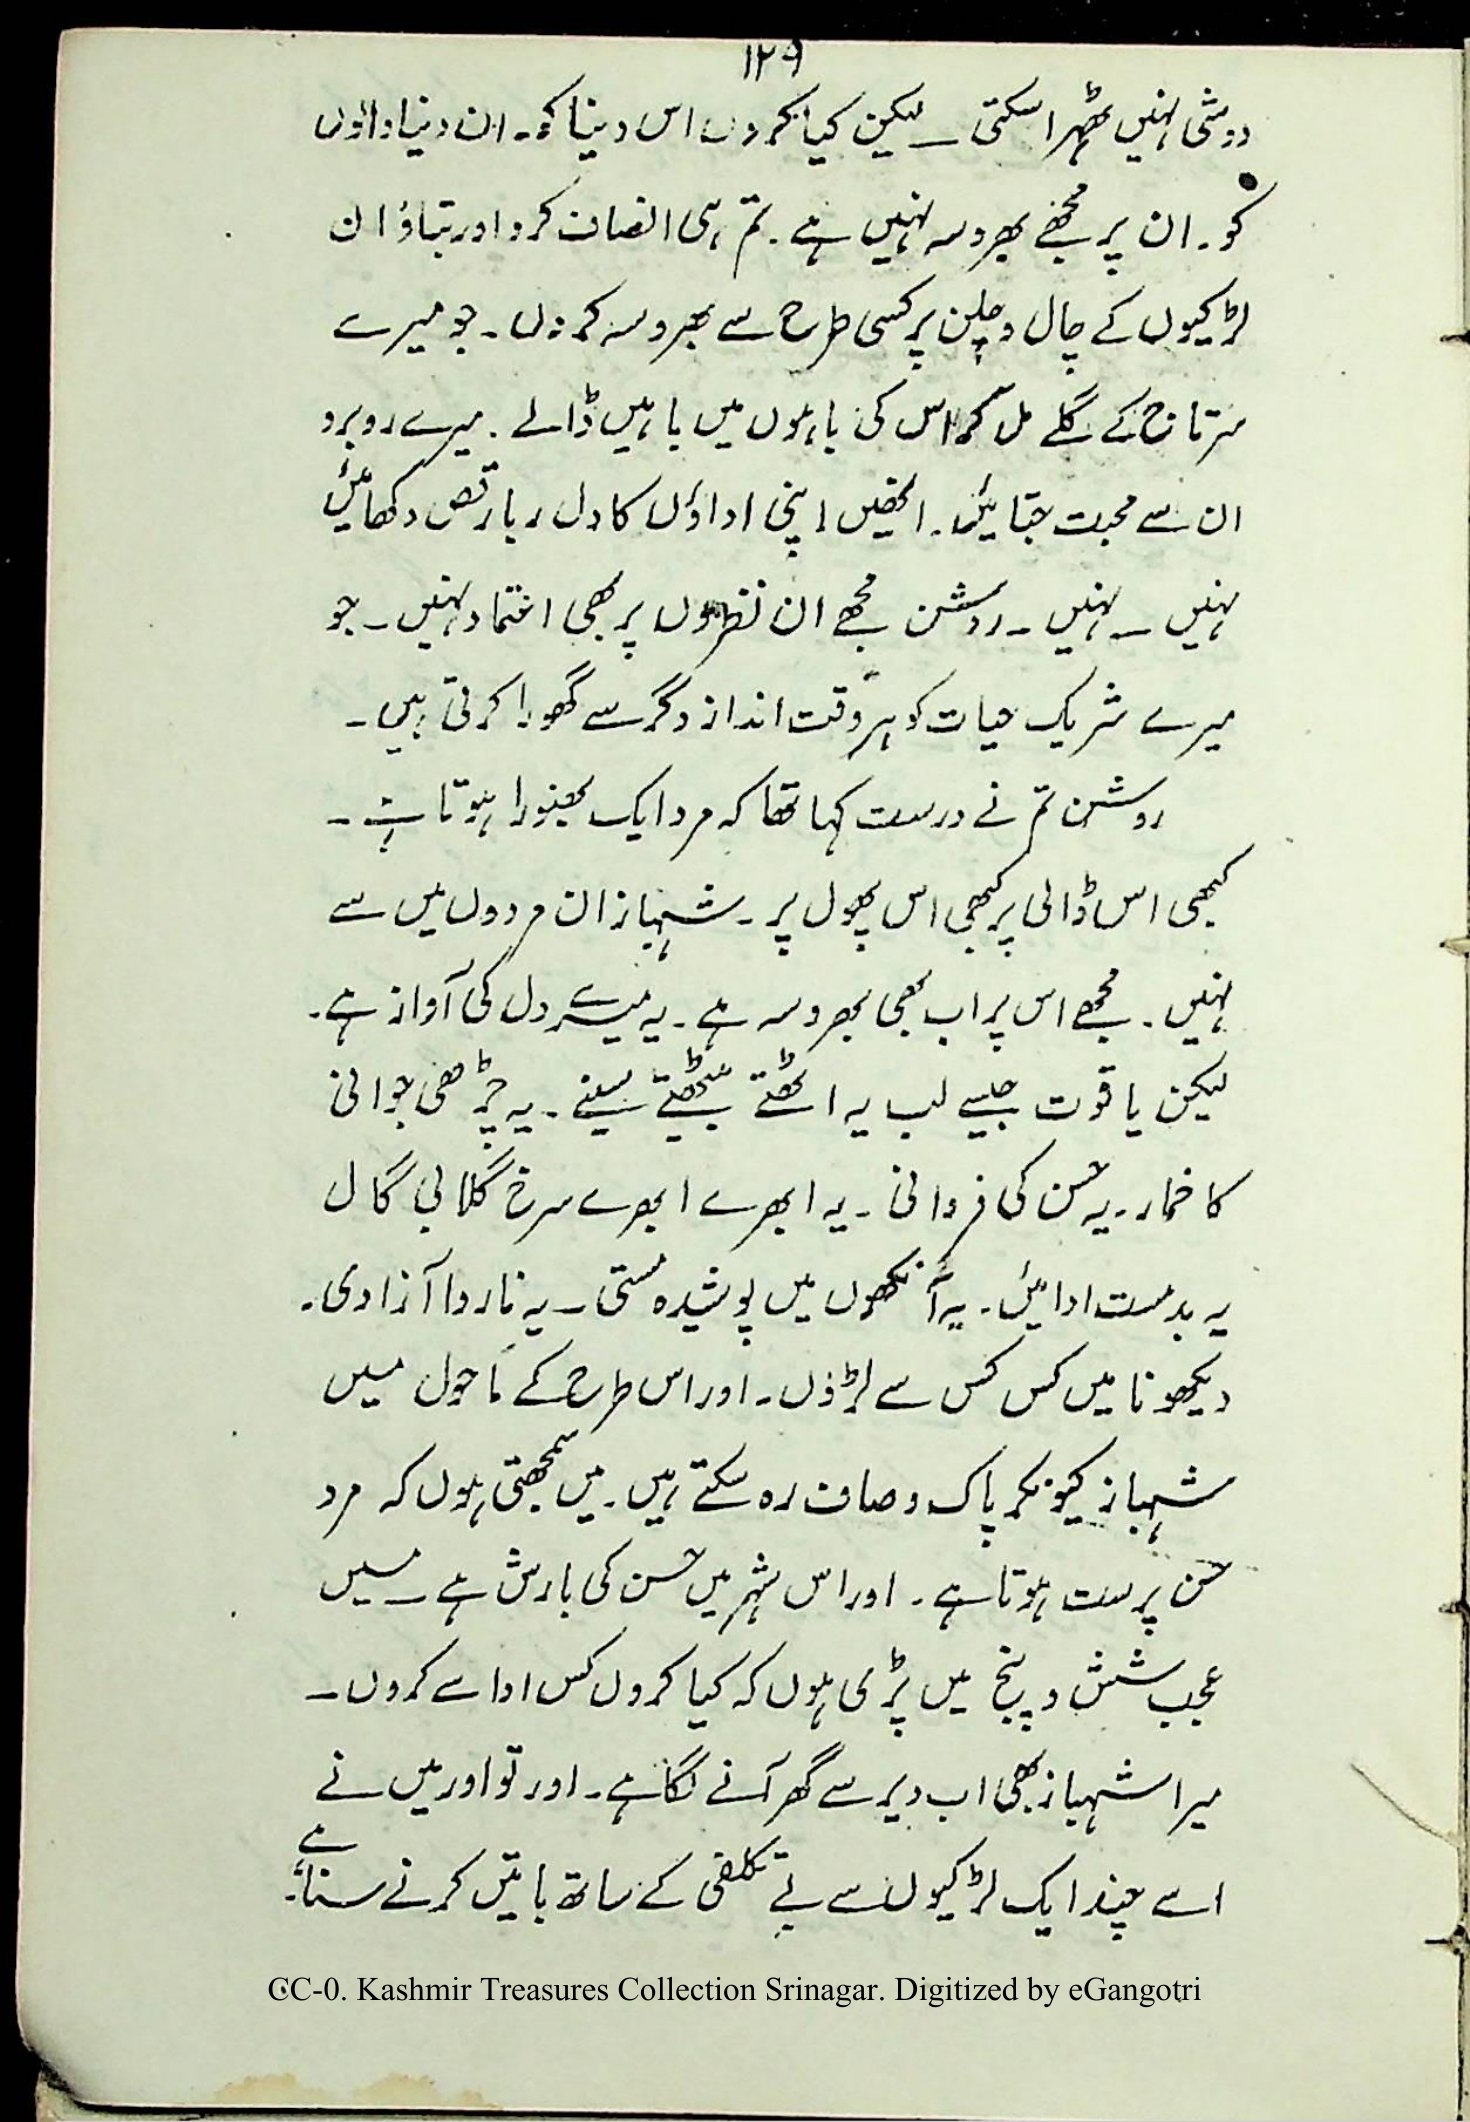 ۱۲۹
دوشی نہیں ٹھہرا سکتی ۔ لیکن کیا کروں اس دینا کو۔ ان دنیا والوں
کو۔ ان پر مجھے بھروسہ نہیں ہے ۔ تم ہی انصاف کرو اور بتاؤ ان
لڑکیوں کے چال و چلن پر کسی طرح سے بھروسہ کروں ۔ جو میرے
سرتاج کے گلے مل کر اس کی باہوں میں باہیں ڈالے ۔ میرے روبرو
ان سے محبت جتائیں ۔ انھیں اپنی اداؤں کا دل ربا رقص دکھائیں
نہیں ۔ نہیں ۔ روشن مجھے ان نظروں پر بھی اعتماد نہیں ۔ جو
میرے شریک حیات کو ہر وقت انداز دگر سے گھورا کرتی ہیں ۔
روشن تم نے درست کہا تھا کہ مرد ایک بھنورا ہوتا ہے ۔
کبھی اس ڈالی پر کبھی اس پھول پر ۔ شہباز ان مردوں میں سے
نہیں ۔ مجھے اس پر اب بھی بھروسہ ہے ۔ یہ میرے دل کی آواز ہے ۔
لیکن یاقوت جیسے لب یہ اٹھتے بیٹھتے سینے ۔ یہ چڑھی جوانی
کا خمار ۔ یہ حسن کی فروانی ۔ یہ ابھرے ابھرے سرخ گلابی گال
یہ بدمست ادائیں ۔ یہ آنکھوں میں پوشیدہ مستی ۔ یہ ناروا آزادی ۔
دیکھو نا میں کس کس سے لڑوں ۔ اور اس طرح کے ماحول میں
شہباز کیونکر پاک و صاف رہ سکتے ہیں ۔ میں سمجھتی ہوں کہ مرد
حسن پرست ہوتا ہے ۔ اور اس شہر میں حسن کی بارش ہے ۔ میں
عجب شش و پنج میں پڑی ہوں کہ کیا کروں کس ادا سے کروں ۔
میرا شہباز بھی اب دیر سے گھر آنے لگا ہے ۔ اور تو اور میں نے
اسے چند ایک لڑکیوں سے بے تکلفی کے ساتھ باتیں کرنے سنا ہے ۔
CC-0. Kashmir Treasures Collection Srinagar. Digitized by eGangotri